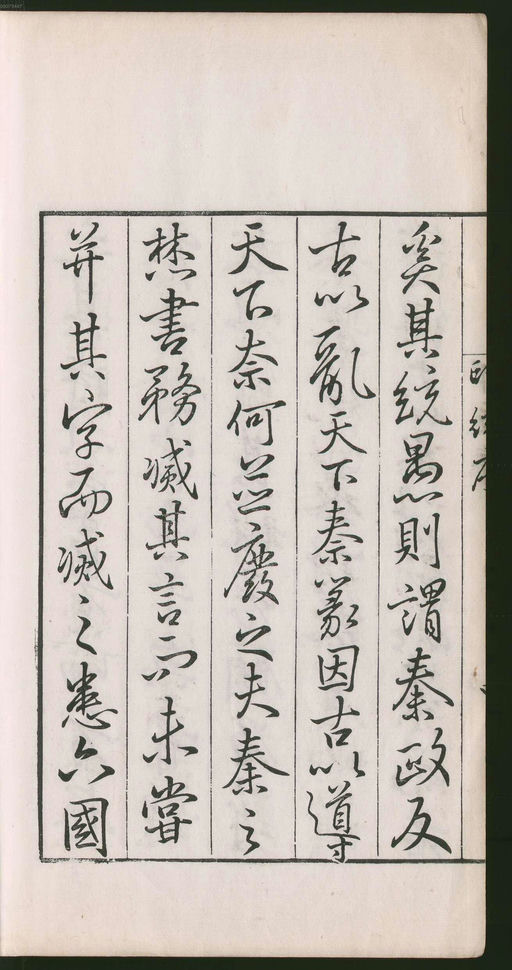 奚其統愚則謂秦政反
古以亂天下秦篆因古以導
天下奈何並廢之夫秦之
焚書務滅其言而未嘗
并其字而滅之患六國